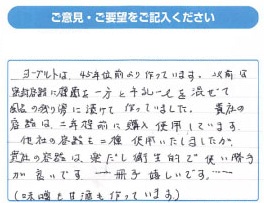 ご意見・ご要望をご記入ください
ヨーグルトは、45年位前より作っています。以前は
容器に種菌を一方と牛乳一ℓを混ぜて
の残り湯に漬けて作っていました。貴社の
容器は、二年程前に購入使用しています。
他社の容器も二種使用いたしましたが、
貴社の容器は楽だし衛生的で使い勝手
が良いです 一番嬉しいです。
(味噌も甘酒も作っています)